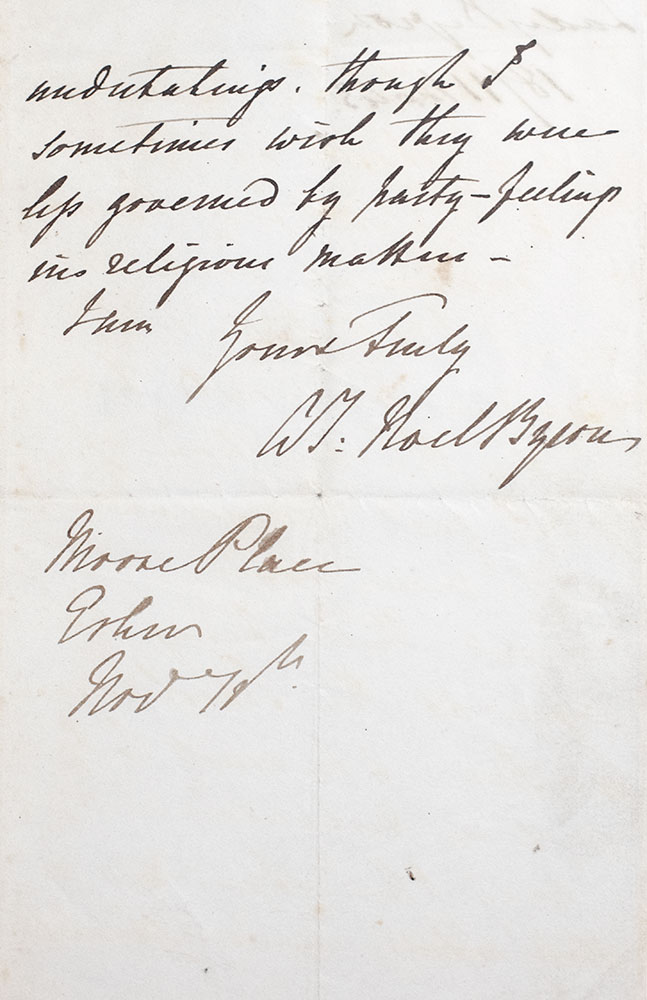 undertakings. though I
sometimes wish they were
less governed by party-feelings
in religious matters -
I am
Yours Truly
AI: Noel Byron
Moore Place
Esher
Novr